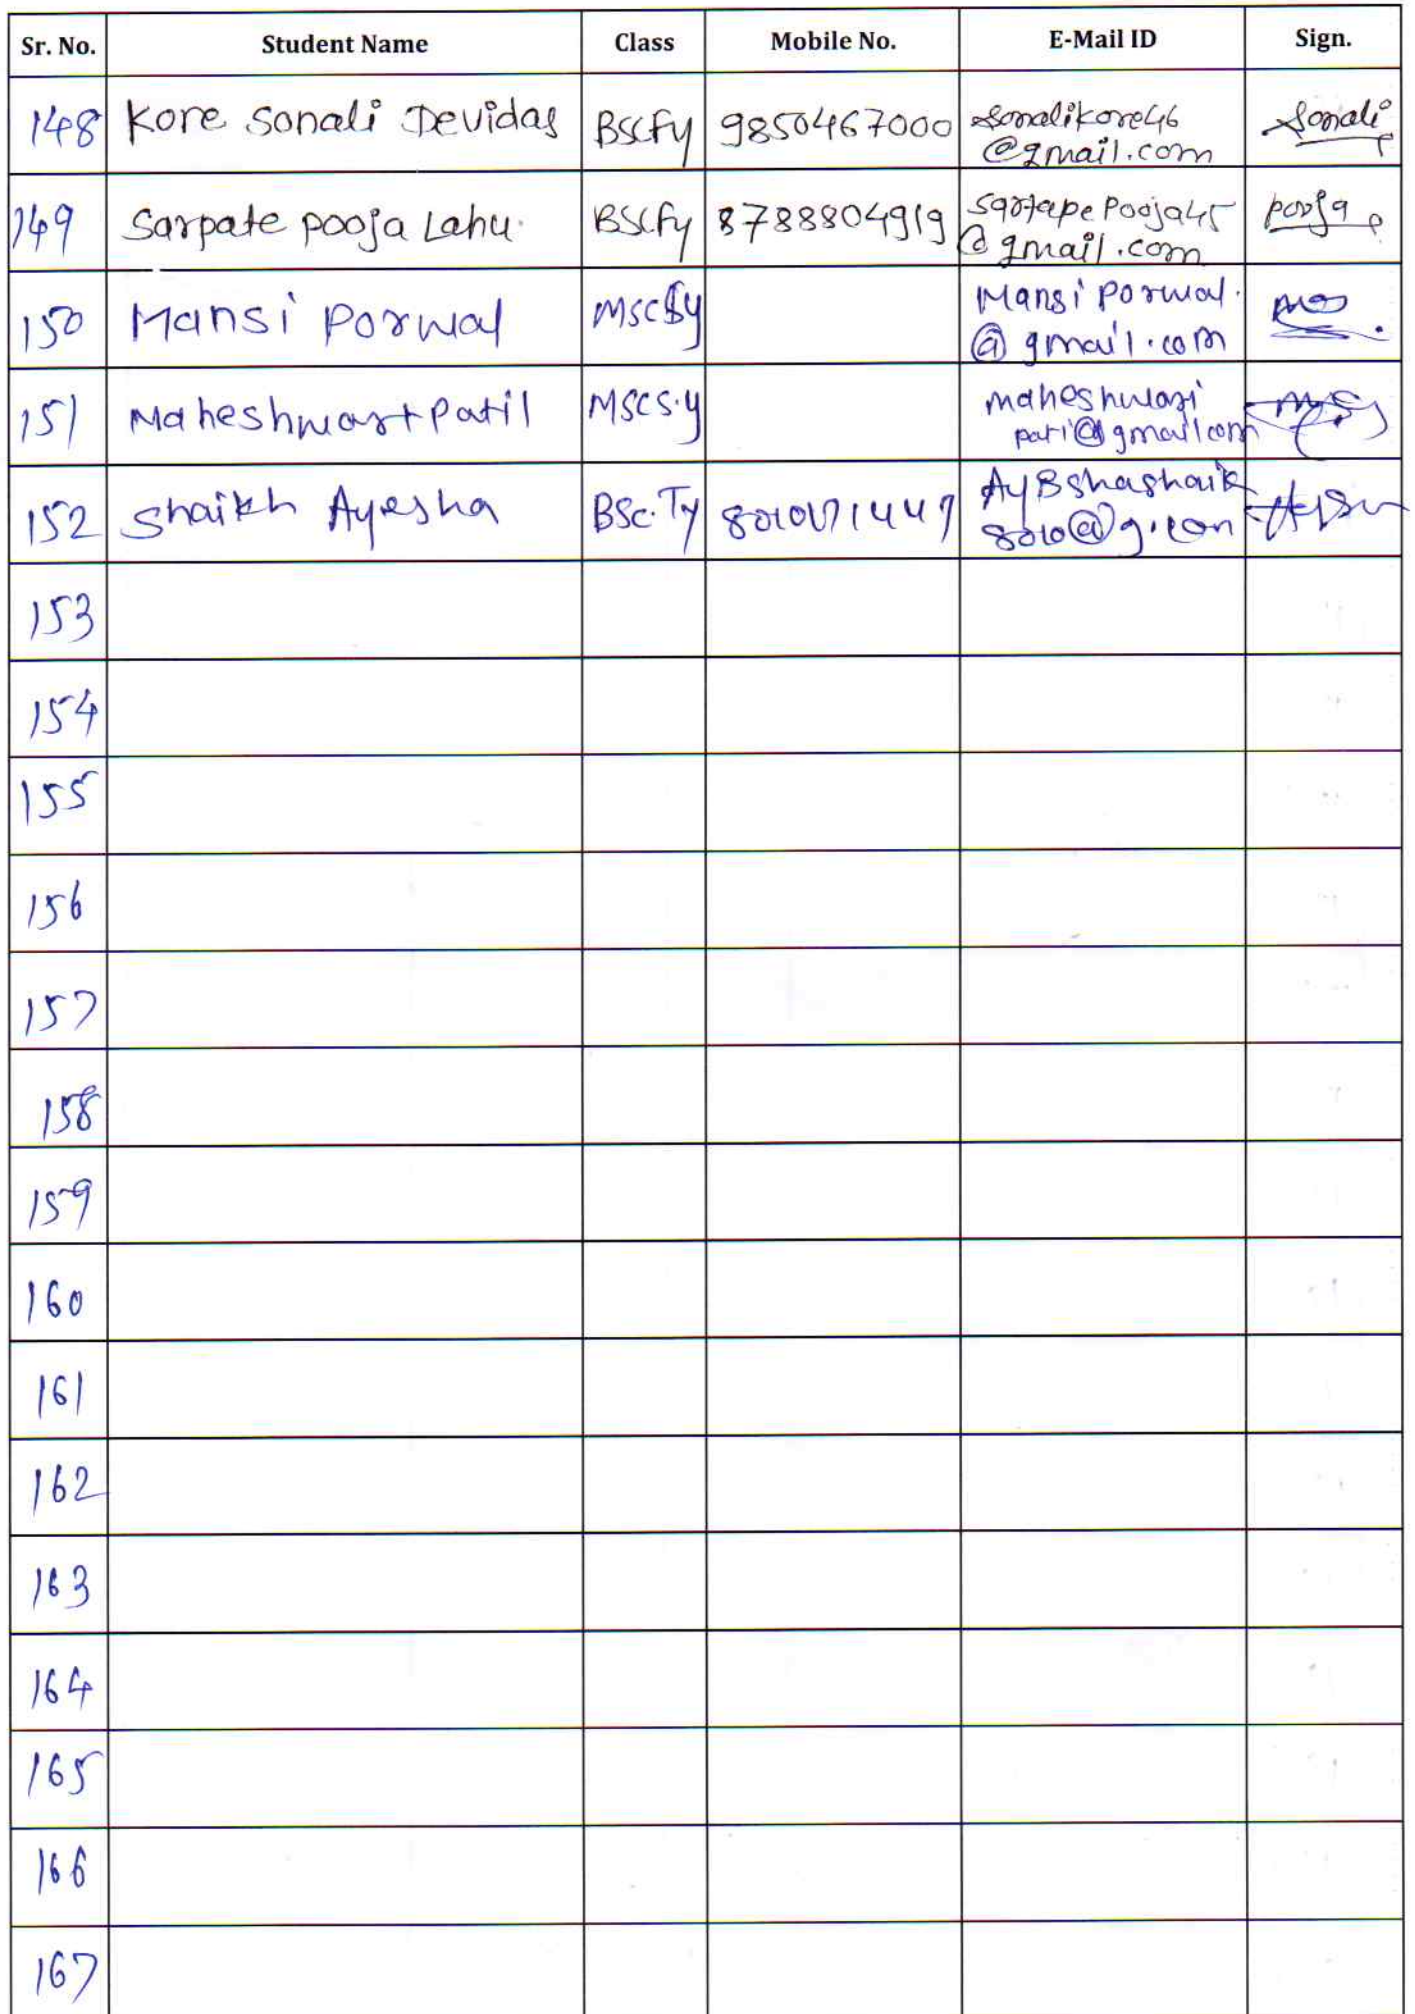 Sr. No. Student Name Class Mobile No. E-Mail ID Sign.
148 Kore Sonali Devidas BSCFy 9850467000 sonalikore46 Sonali
@gmail.com
149 Sarpate pooja Lahu. BSCFy 8788804919 sartapepooja45 pooja
@gmail.com
150 Mansi Porwal MSCSy Mansi porwal.
@gmail.com
151 Maheshwari Patil MSCS.y maheshwari
pati@gmailcom
152 Shaikh Ayesha BSc.Ty
8010@g.com
153
154
155
156
157
158
159
160
161
162
163
164
165
166
167